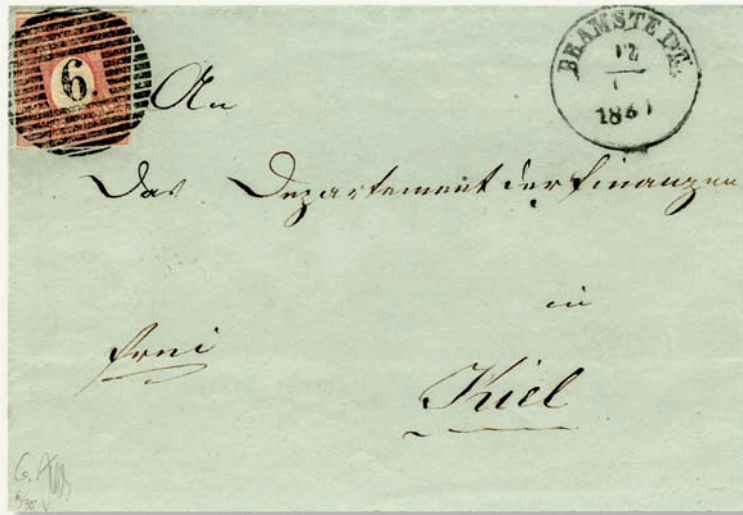 6.
BRAMSTEDT.
12
1
An
Das Departement der Finanzen
in
frei
Kiel